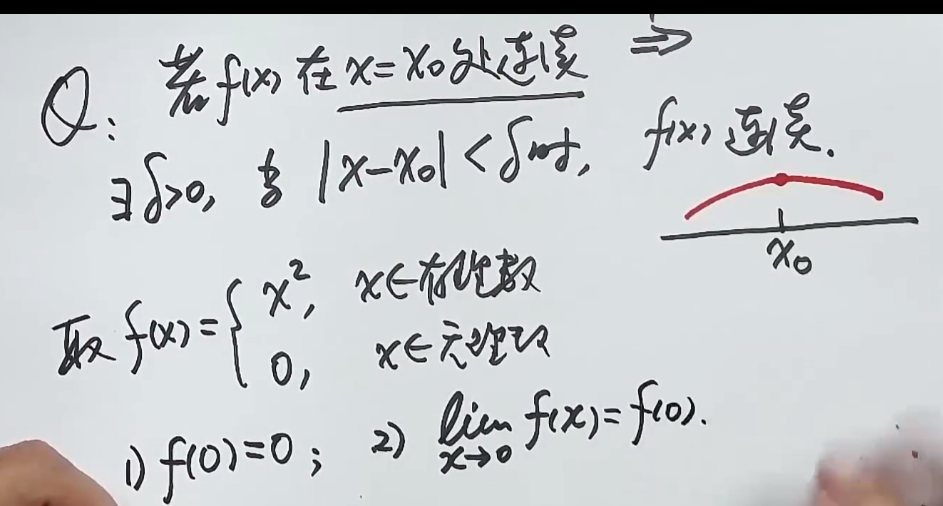 Q: 若f(x)在x=x₀处连续 ⇒
∃δ>0, 当|x-x₀|<δ时, f(x)连续.
x₀
取f(x)={x², x∈有理数
0, x∈无理数
1) f(0)=0; 2) lim x→0 f(x)=f(0).